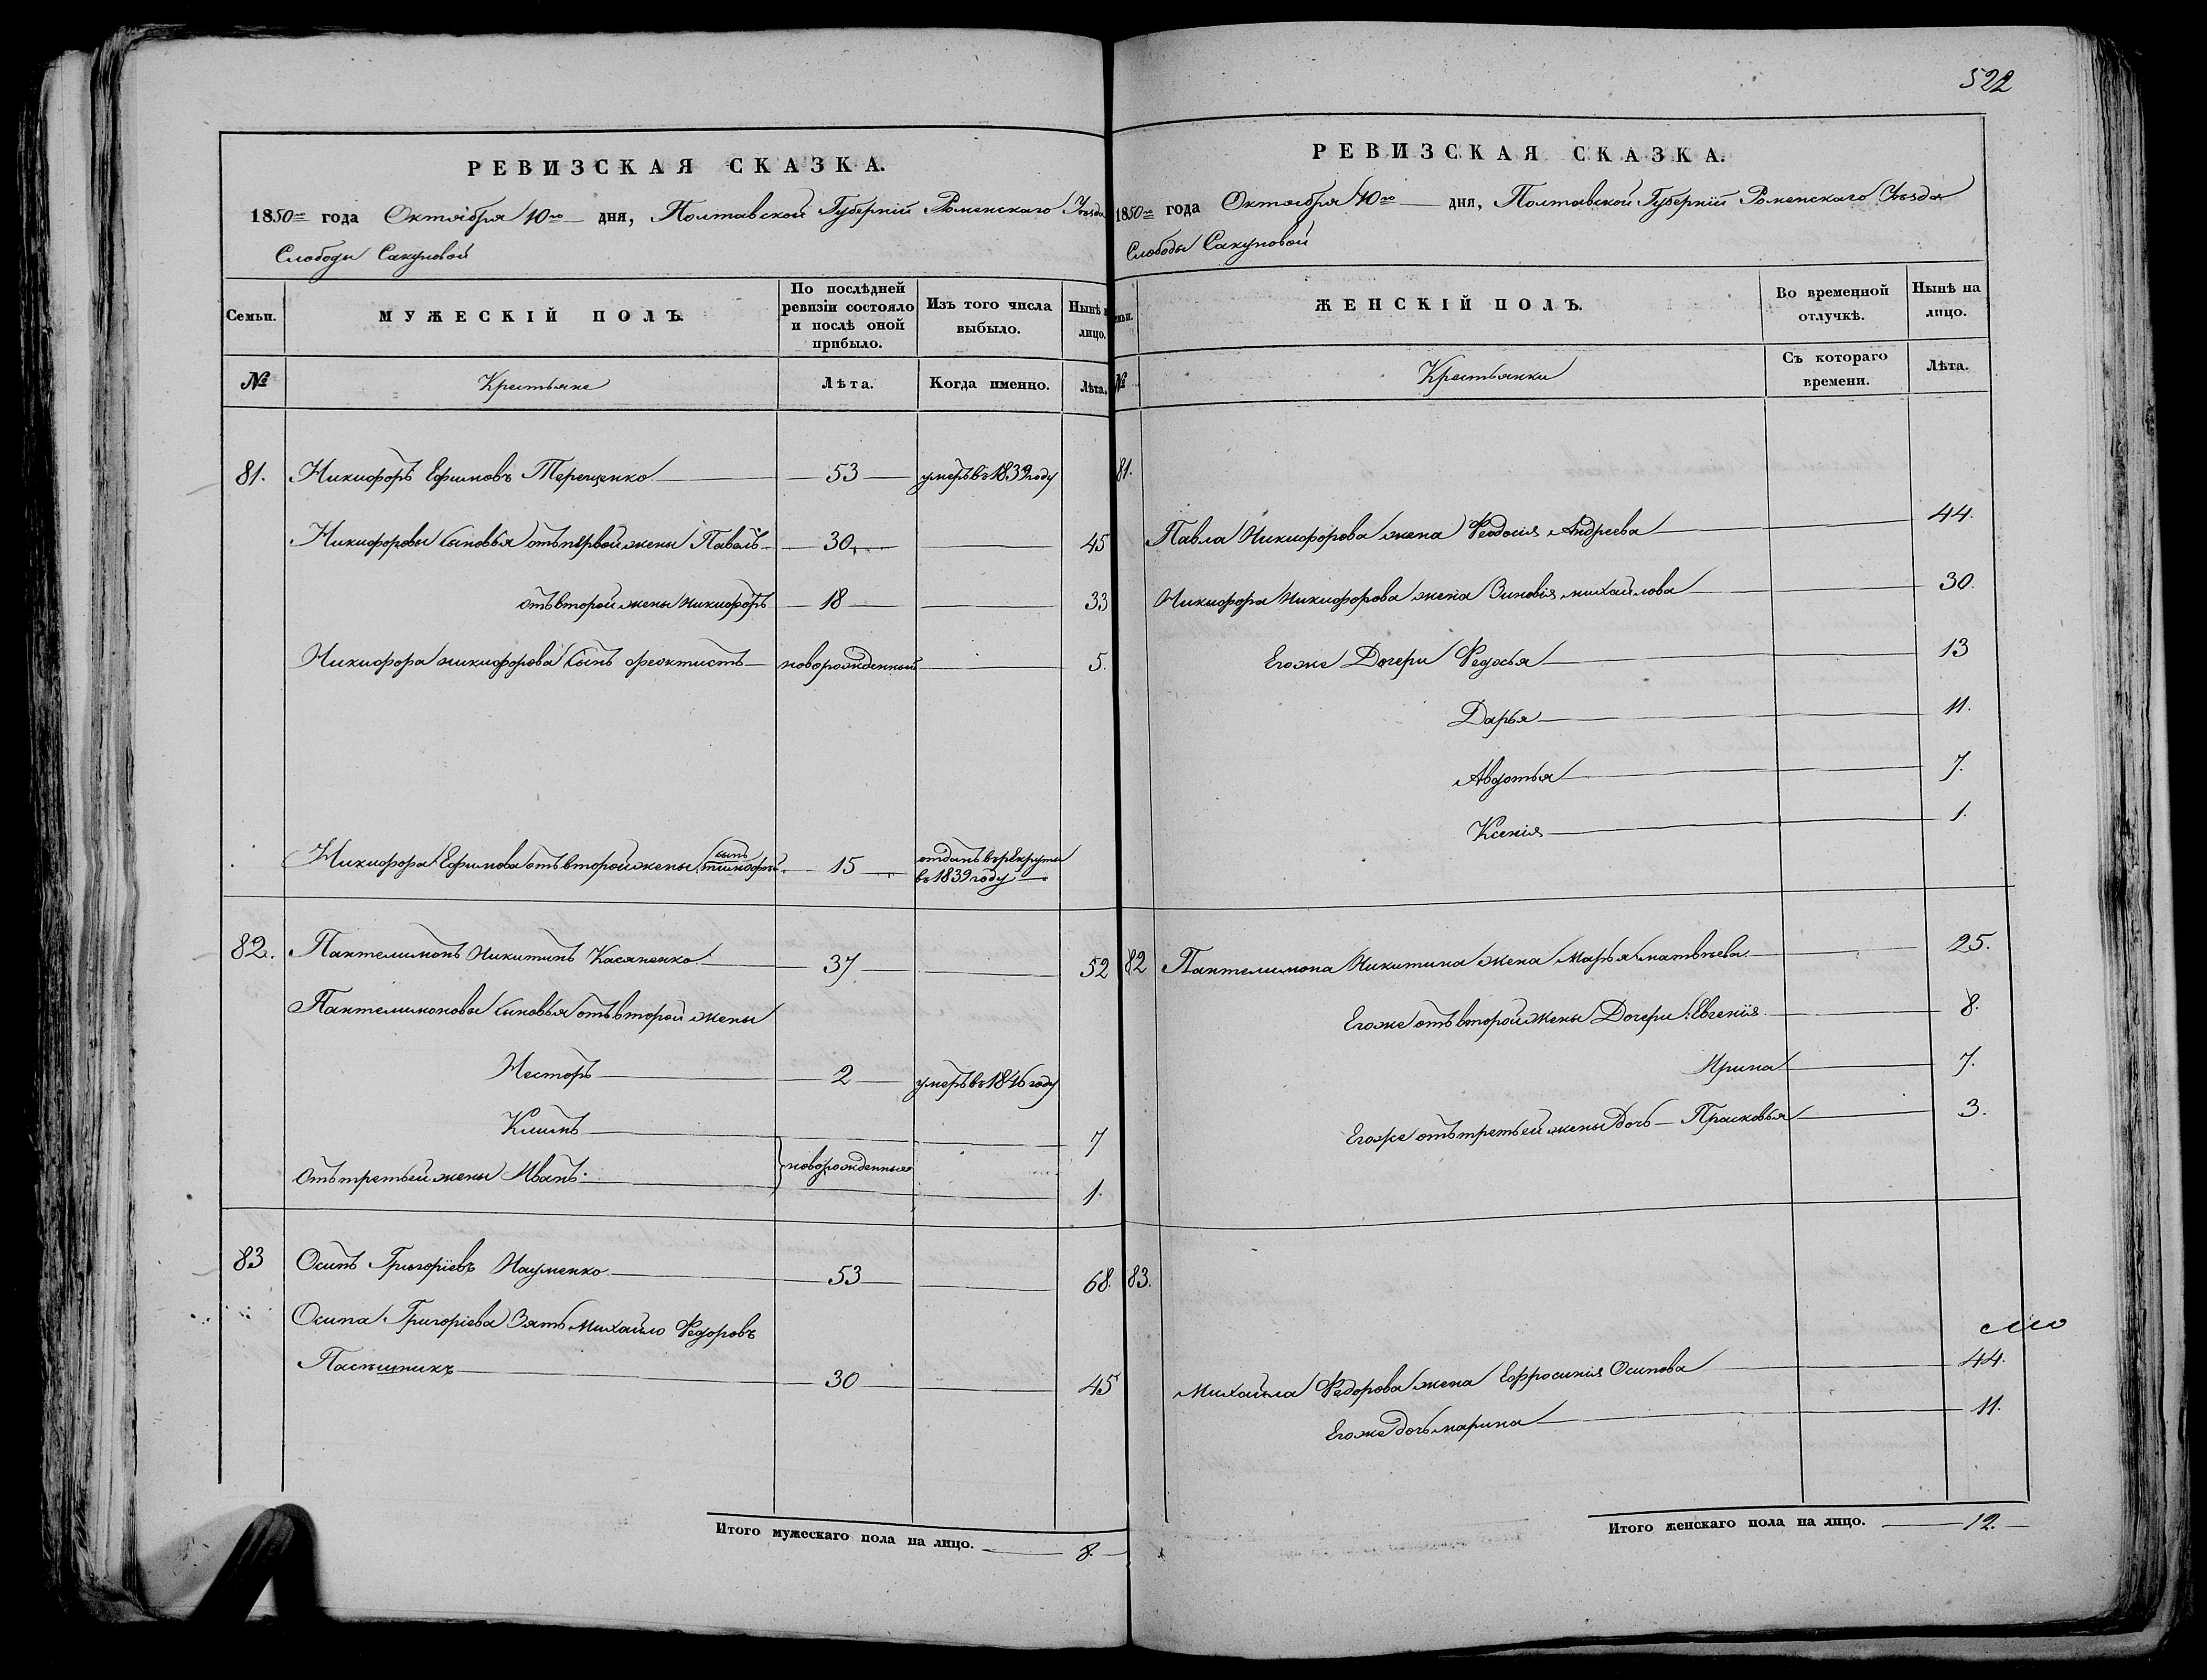 522
РЕВИЗСКАЯ СКАЗКА.
1850го года Октября 10го дня, Полтавской Губернии Роменскаго Уезда
Слободы Сакуновой
Семьи.
МУЖЕСКІЙ ПОЛЪ.
По послѣдней ревизіи состояло и послѣ оной прибыло.
Изъ того числа выбыло.
Нынѣ на лицо.
№
Крестьяне
Лѣта.
Когда именно.
Лѣта.
81. Никифоръ Ефимовъ Терещенко 53 умеръ въ 1839 году
Никифоровы сыновья отъ первой жены Павелъ 30 45
отъ второй жены Никифоръ 18 33
Никифора Никифорова сынъ Феоктистъ новорожденный 5.
Никифора Ефимова отъ второй жены сынъ 15 отданъ в рекруты
въ 1839 году
82. Пантелимонъ Никитинъ Касяненко 37 52
Пантелимоновы сыновья отъ второй жены
Несторъ 2 умеръ въ 1846 году
Климъ 7
отъ третьей жены Иванъ новорожденные 1.
83 Осипъ Григоріевъ Науменко 53 68.
Осипа Григоріева Зять Михайло Федоровъ
Пасѣшникъ 30 45
Итого мужескаго пола на лицо. 8.
РЕВИЗСКАЯ СКАЗКА.
1850го года Октября 10го дня, Полтавской Губерніи Роменскаго Уѣзда
Слободы Сакуновой
Семьи.
ЖЕНСКІЙ ПОЛЪ.
Во временной отлучкѣ.
Нынѣ на лицо.
№
Крестьянки
Съ котораго времени.
Лѣта.
81.
Павла Никифорова жена Феодосія Андреева 44.
Никифора Никифорова жена Зиновія Михайлова 30.
Егоже Дочери Федосья 13
Дарья 11.
Авдотья 7.
Ксенія 1.
82 Пантелимона Никитина жена Марья Матвѣева 25.
Егоже отъ второй жены Дочери: Евгенія 8.
Ирина 7.
Егоже отъ третьей жены дочь Прасковья 3.
83.
Михайла Федорова жена Ефросинія Осипова 44.
Егоже дочь Марина 11.
Итого женскаго пола на лицо. 12.